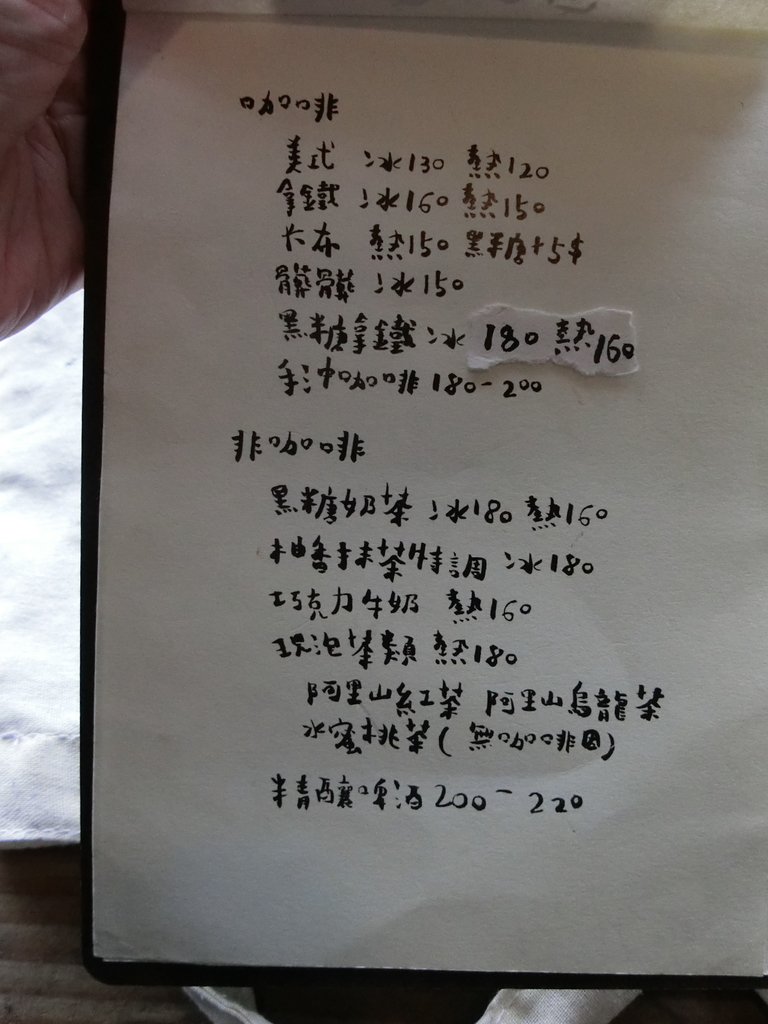 咖啡
美式 冰130 熱120
拿鐵 冰160 熱150
卡布 熱150 黑糖+5$
髒髒 冰150
黑糖拿鐵 冰 180 熱160
手沖咖啡 180-200
非咖啡
黑糖奶茶 冰180 熱160
柚香抹茶特調 冰180
巧克力牛奶 熱160
現泡茶類 熱180
阿里山紅茶 阿里山烏龍茶
水蜜桃茶(無咖啡因)
精釀啤酒 200-220